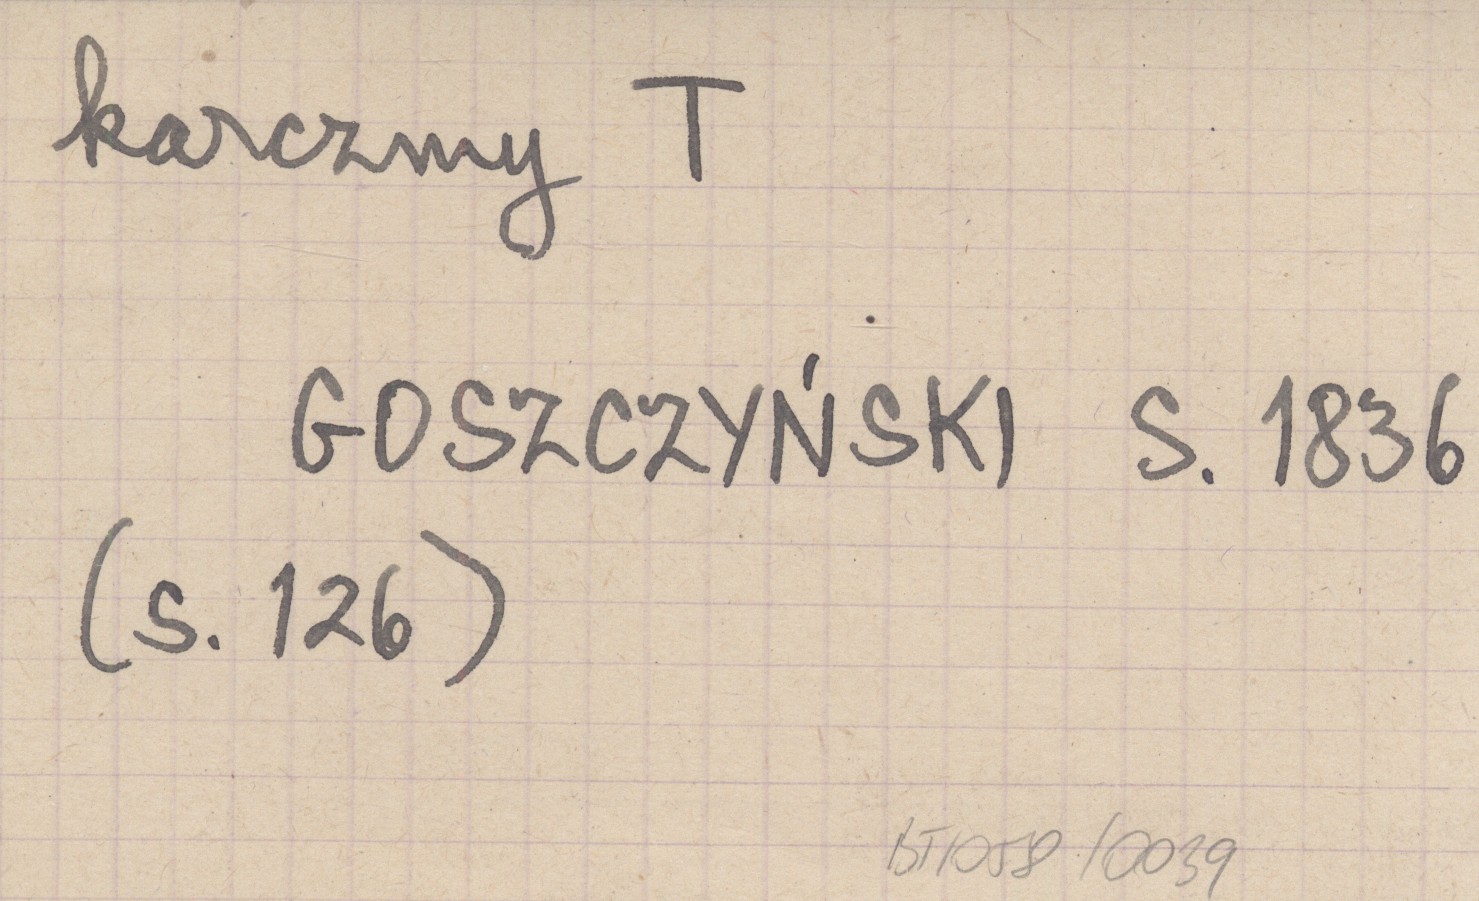 karczmy T
GOSZCZYŃSKI S. 1836
(s. 126)
BT1058/0039